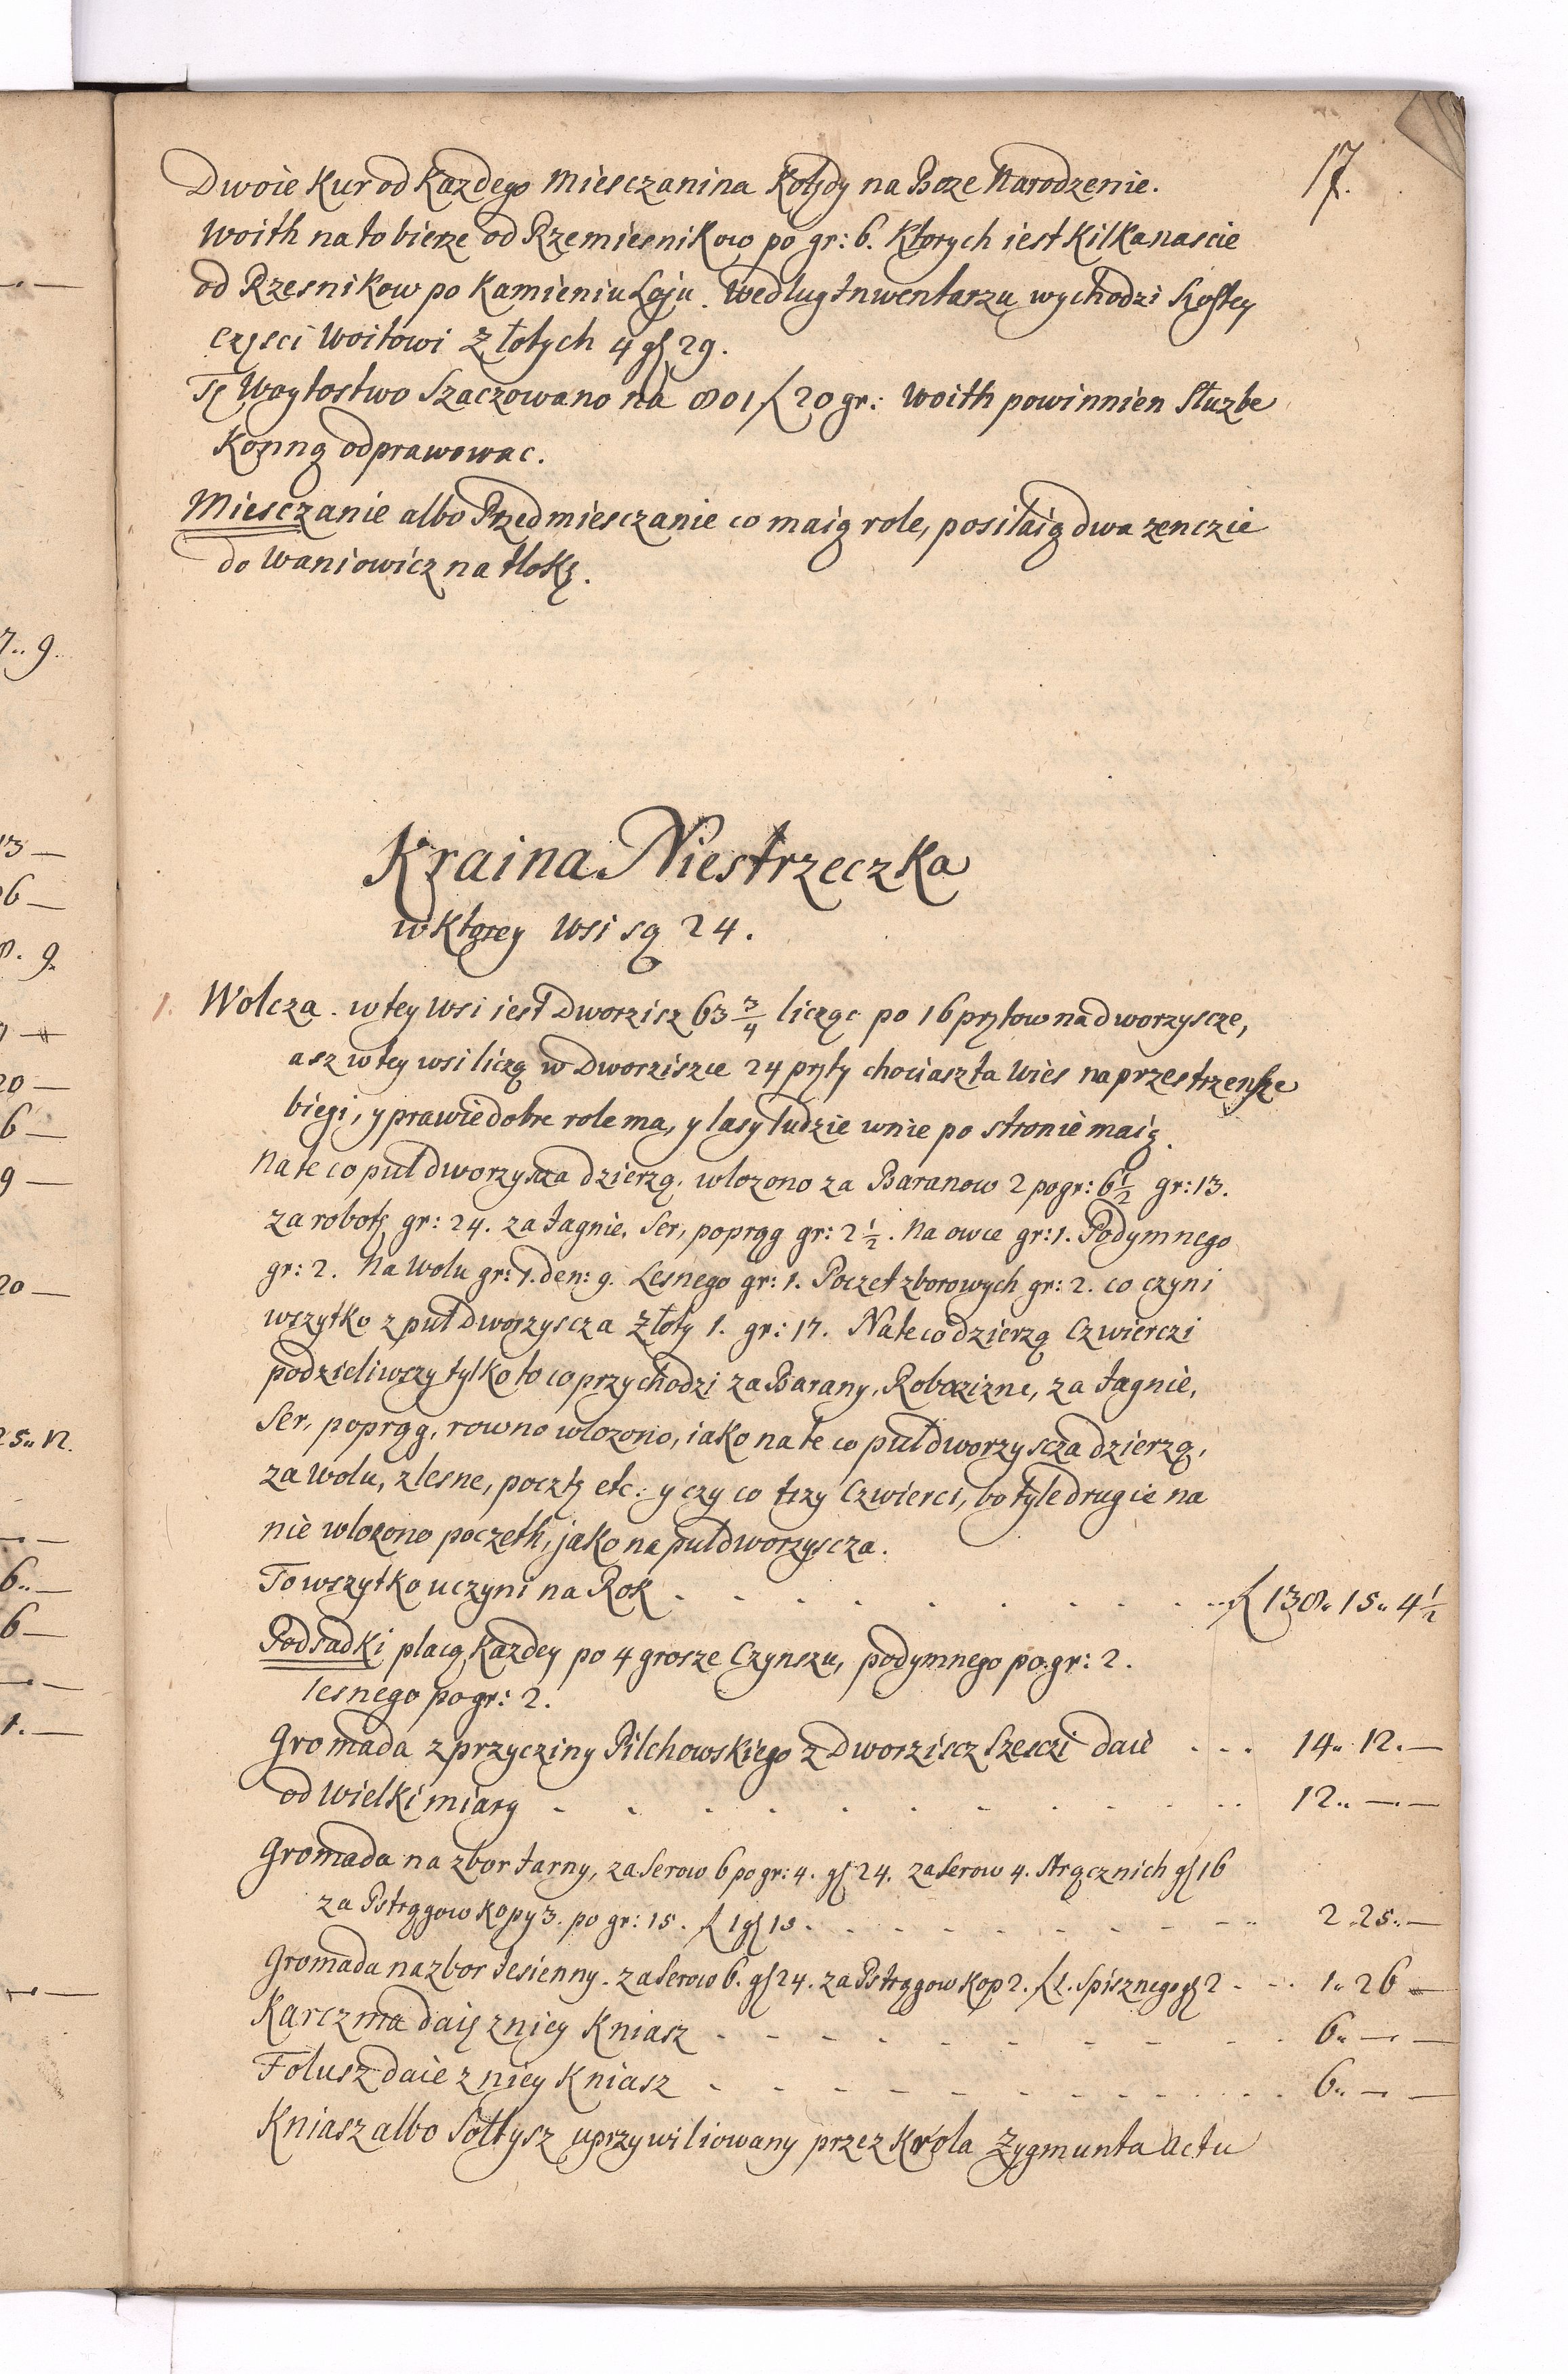 17.
Dwoie Kur od Kazdego Miesczanina Kolędy na Boze Narodzenie.
Woith na to bierze od Rzemiesnikow po gr: 6. Ktorych iest Kilkanascie
od Rzesnikow po Kamieniu Loju. Wedlug Inwentarzu wychodzi Szostey
części Woitowi Złotych 4 gſ 29.
Tę Woytostwo Szaczowano na 801 ſ 20 gr: Woith powinnien Służbe
Konną odprawowac.
Miesczanie albo Przedmiesczanie co maią role, posiłaią dwa zenczie
do Waniowicz na tłokę.
Kraina Niestrzeczka
w Ktorey Wsi są 24.
1. Wolcza. w tey Wsi iest Dworzisz 63 3/4 licząc po 16 prętow na dworzyscze,
asz w tey wsi liczą w Dworziszce 24 pręty chociasz ta Wies na przestrzensze
biegi, y prawie dobre role ma, y lasy ludzie wnie po stronie maią.
Na te co puł dworzyscza dzierzą. wlozono za Baranow 2 po gr: 6 1/2 gr: 13.
za robotę gr: 24. za Jagnie, Ser, poprąg gr: 2 1/2. Na owce gr: 1. Podymnego
gr: 2. Na Wolu gr: 1. den: 9. Lesnego gr: 1. Poczet zborowych gr: 2. co czyni
wszytko z puł Dworzyscza Złoty 1. gr: 17. Na te co dzierzą Czwierczi
podzieliwszy tylko to co przychodzi za Barany, Robocizne, za Jagnie,
Ser, poprąg, rowno wlozono, iako na te co puł dworzyscza dzierzą,
za Wolu, z lesne, pocztę etc: y czy co trzy Czwierci, bo tyle drugie na
nie wlozono poczeth, jako na puł dworzyscza.
To wszytko uczyni na Rok . . . . . . . . ſ 138 „ 15 „ 4 1/2
Podsadki placą Kazdey po 4 grosze Czynszu, podymnego po gr: 2.
lesnego po gr: 2.
Gromada z przycziny Pilchowskiego z Dworziscz Szesczi daie . . . 14 „ 12. —
od Wielki miary . . . . . . . . . . 12 „ — —
Gromada na zbor Jarny, za Serow 6 po gr: 4. gſ 24. za Serow 4. Strącznich gſ 16
za Pstrągow Kopy 3. po gr: 15. ſ 1 gſ 15 . . . . . . . . 2 „ 25 „ —
Gromada na zbor Jesienny. za Serow 6. gſ 24. za Pstrągow Kop 2. ſ 1. Spisznego gſ 2 . . . 1 „ 26 —
Karczma daię z niey Kniasz . . . . . . . . 6 „ — —
Folusz daie z niey Kniasz . . . . . . . . . 6 „ — —
Kniasz albo Sołtysz uprzywiliowany przez Krola Zygmunta Actu